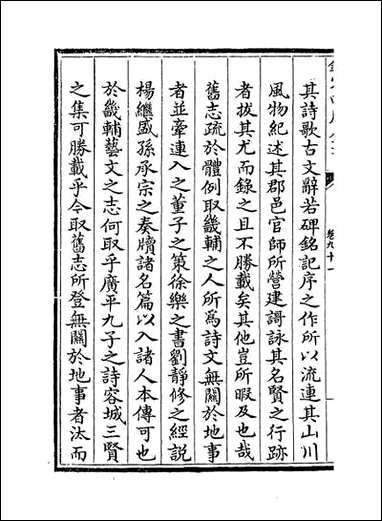 其詩歌古文辭若碑銘記序之作所以流連其山川
風物紀述其郡邑官師所營建謌詠其名賢之行跡
者拔其尤而錄之且不勝載矣其他豈所暇及也哉
舊志疏於體例取畿輔之人所為詩文無關於地事
者並牽連入之董子之策徐樂之書劉靜修之經説
楊繼盛孫承宗之奏牘諸名篇以入諸人本傳可也
於畿輔藝文之志何取乎廣平九子之詩容城三賢
之集可勝載乎今取舊志所登無關於地事者汰而